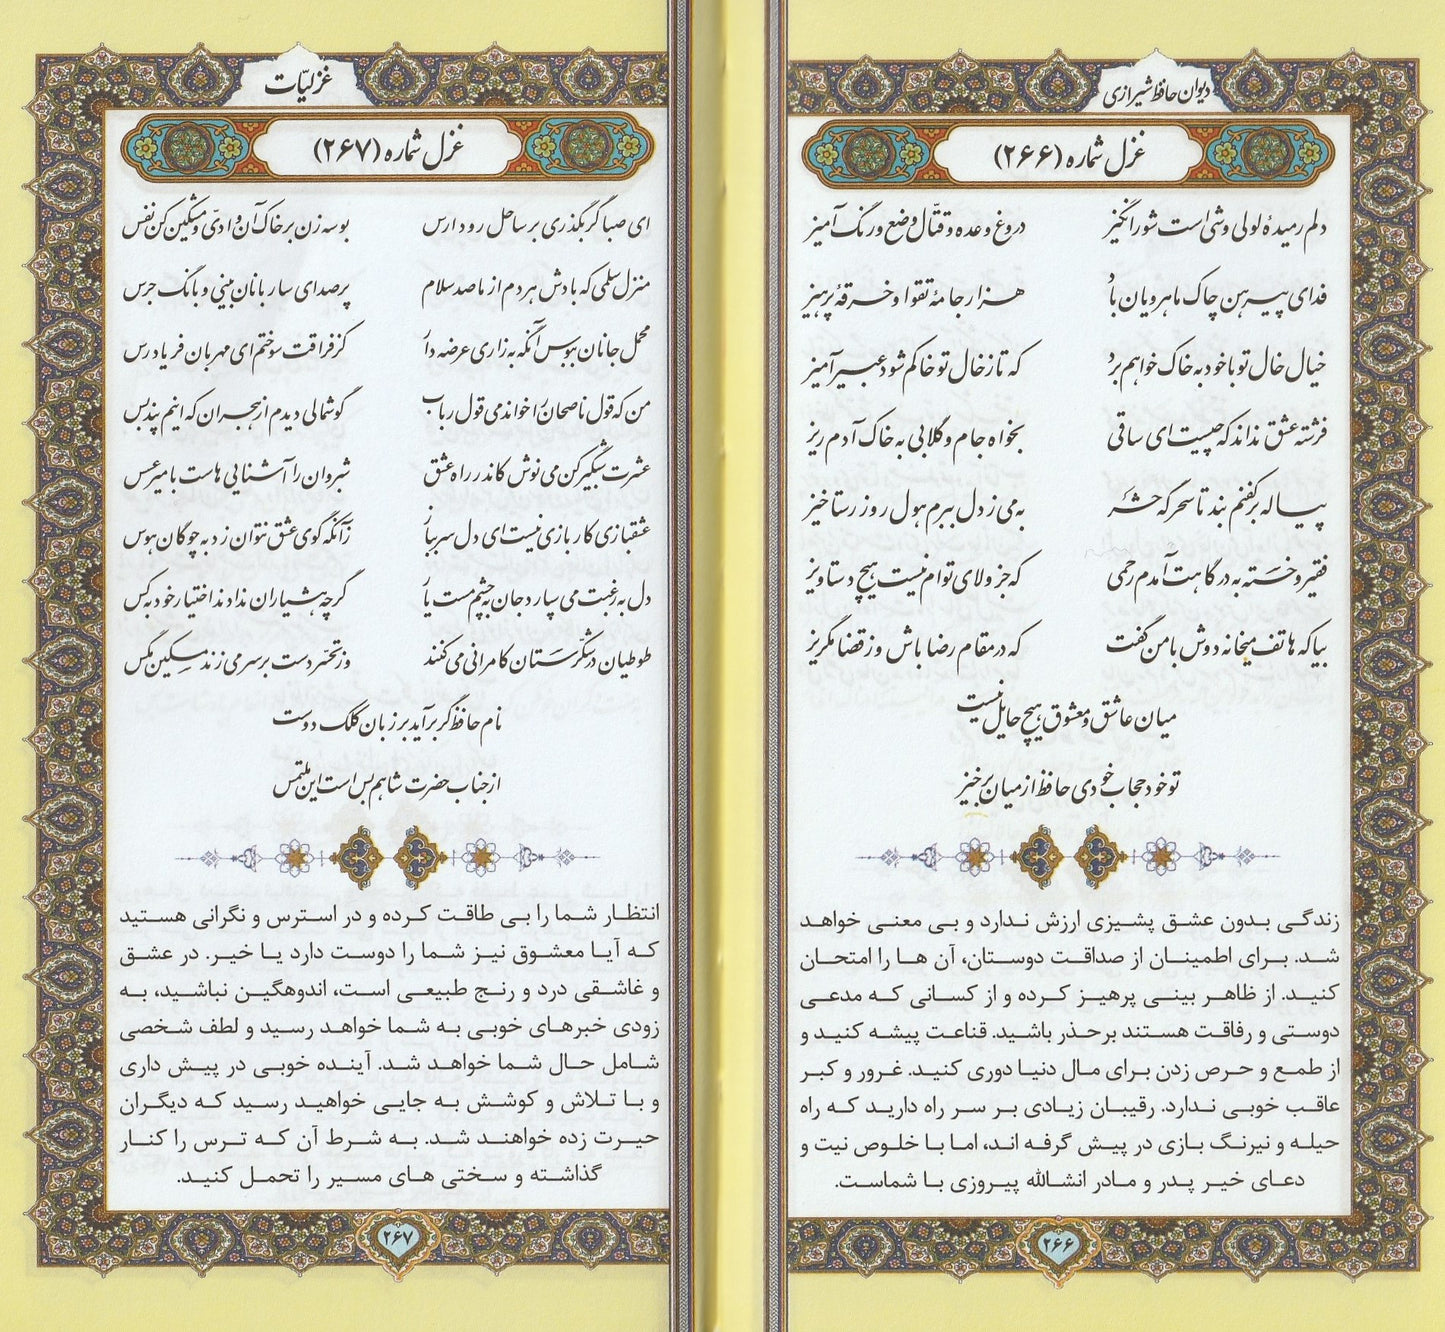 دیوان حافظ شیرازی
غزل شماره (۲۶۶)
دلم رمیدهٔ لولی وشی است شورانگیز
دروغ وعده و قتّال وضع و رنگ آمیز
فدای پیرهن چاک ماهرویان باد
هزار جامهٔ تقوا و خرقهٔ پرهیز
خیال خال تو با خود به خاک خواهم برد
که تا ز خال تو خاکم شود عبیر آمیز
فرشته عشق نداند که چیست ای ساقی
بخواه جام و گلابی به خاک آدم ریز
پیاله بر کفنم بند تا سحرگه حشر
به می ز دل ببرم هول روز رستاخیز
فقیر و خسته به درگاهت آمدم رحمی
که جز ولای توام نیست هیچ دستاویز
بیا که هاتف میخانه دوش با من گفت
که در مقام رضا باش وز قضا مگریز
میان عاشق و معشوق هیچ حایل نیست
تو خود حجاب خودی حافظ از میان برخیز
زندگی بدون عشق پشیزی ارزش ندارد و بی معنی خواهد
شد. برای اطمینان از صداقت دوستان، آن ها را امتحان
کنید. از ظاهر بینی پرهیز کرده و از کسانی که مدعی
دوستی و رفاقت هستند برحذر باشید. قناعت پیشه کنید و
از طمع و حرص زدن برای مال دنیا دوری کنید. غرور و کبر
عاقب خوبی ندارد. رقیبان زیادی بر سر راه دارید که راه
حیله و نیرنگ بازی در پیش گرفه اند، اما با خلوص نیت و
دعای خیر پدر و مادر انشالله پیروزی با شماست.
۲۶۶
غزلیّات
غزل شماره (۲۶۷)
ای صبا گر بگذری بر ساحل رود ارس
بوسه زن بر خاک آن وادیّ و مشکین کن نفس
منزل سلمی که بادش هر دم از ما صد سلام
پر صدای ساربانان بینی و بانگ جرس
محمل جانان ببوس آنگه به زاری عرضه دار
کز فراقت سوختم ای مهربان فریاد رس
من که قول ناصحان را خواندمی قول رباب
گوشمالی دیدم از هجران که اینم پند بس
عشرت شبگیر کن می نوش کاندر راه عشق
شبروان را آشنایی هاست با میر عسس
عشقبازی کار بازی نیست ای دل سر بباز
زآنکه گوی عشق نتوان زد به چوگان هوس
دل به رغبت می سپارد جان به چشم مست یار
گرچه هشیاران نداند اختیار خود به کس
طوطیان در شکّرستان کامرانی می کنند
وز تحسّر دست بر سر می زند مسکین مگس
نام حافظ گر برآید بر زبان کلک دوست
از جناب حضرت شاهم بس است این ملتمس
انتظار شما را بی طاقت کرده و در استرس و نگرانی هستید
که آیا معشوق نیز شما را دوست دارد یا خیر. در عشق
و غاشقی درد و رنج طبیعی است، اندوهگین نباشید، به
زودی خبرهای خوبی به شما خواهد رسید و لطف شخصی
شامل حال شما خواهد شد. آینده خوبی در پیش داری
و با تلاش و کوشش به جایی خواهید رسید که دیگران
حیرت زده خواهند شد. به شرط آن که ترس را کنار
گذاشته و سختی های مسیر را تحمل کنید.
۲۶۷